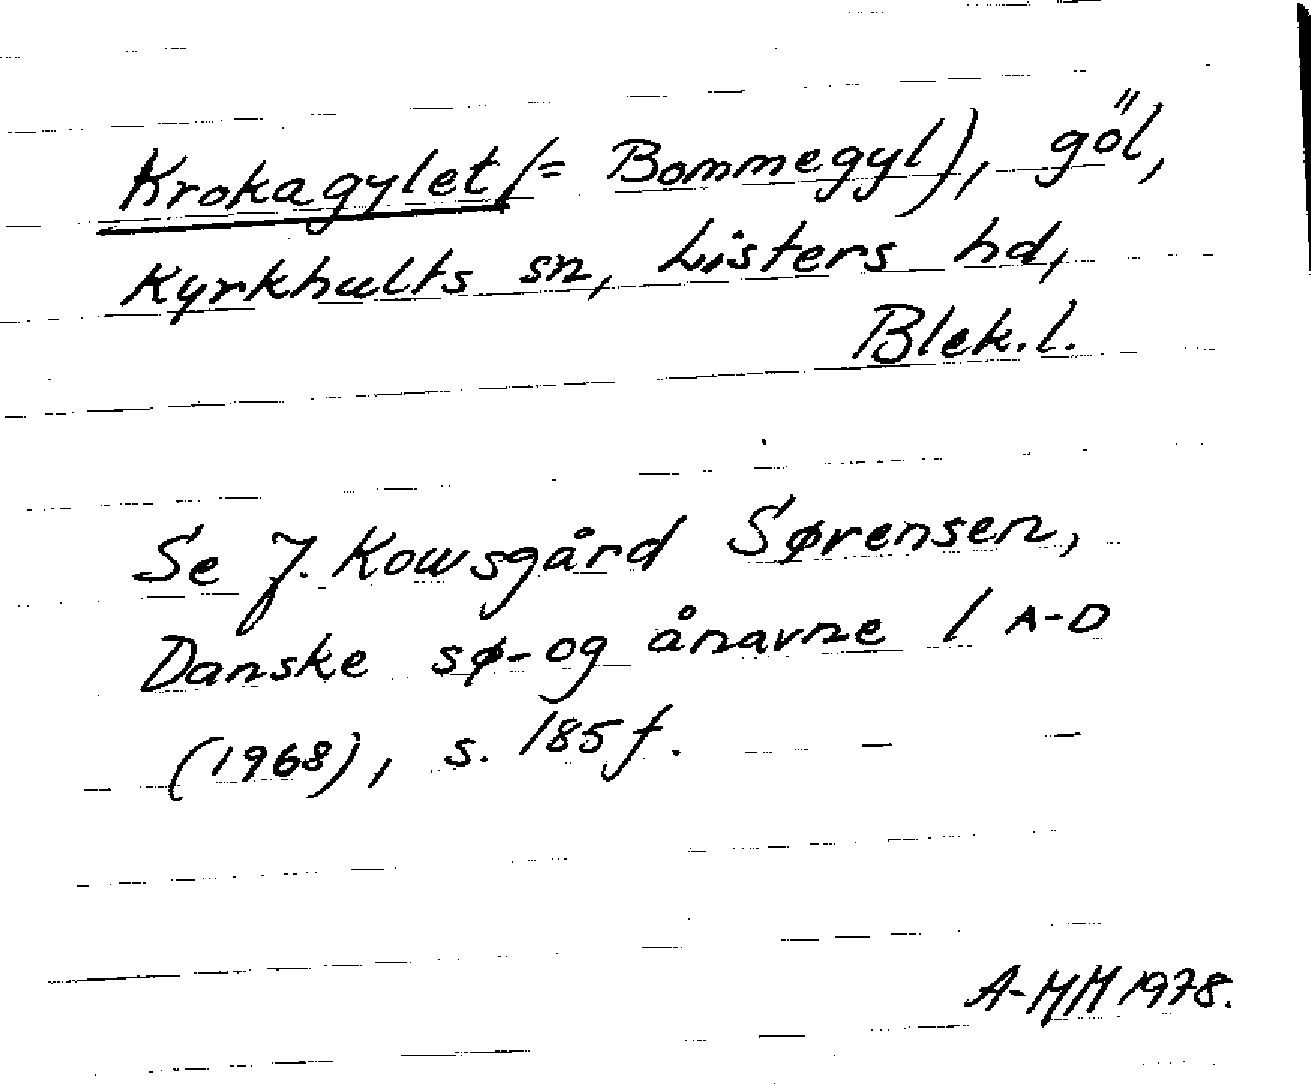 Krokagylet (= Bommegyl), göl,
Kyrkhults sn, Listers hd,
Blek. l.
Se J. Kousgård Sørensen,
Danske sø- og ånavne 1 A-D
(1968), s. 185 f.
A-MM 1978.